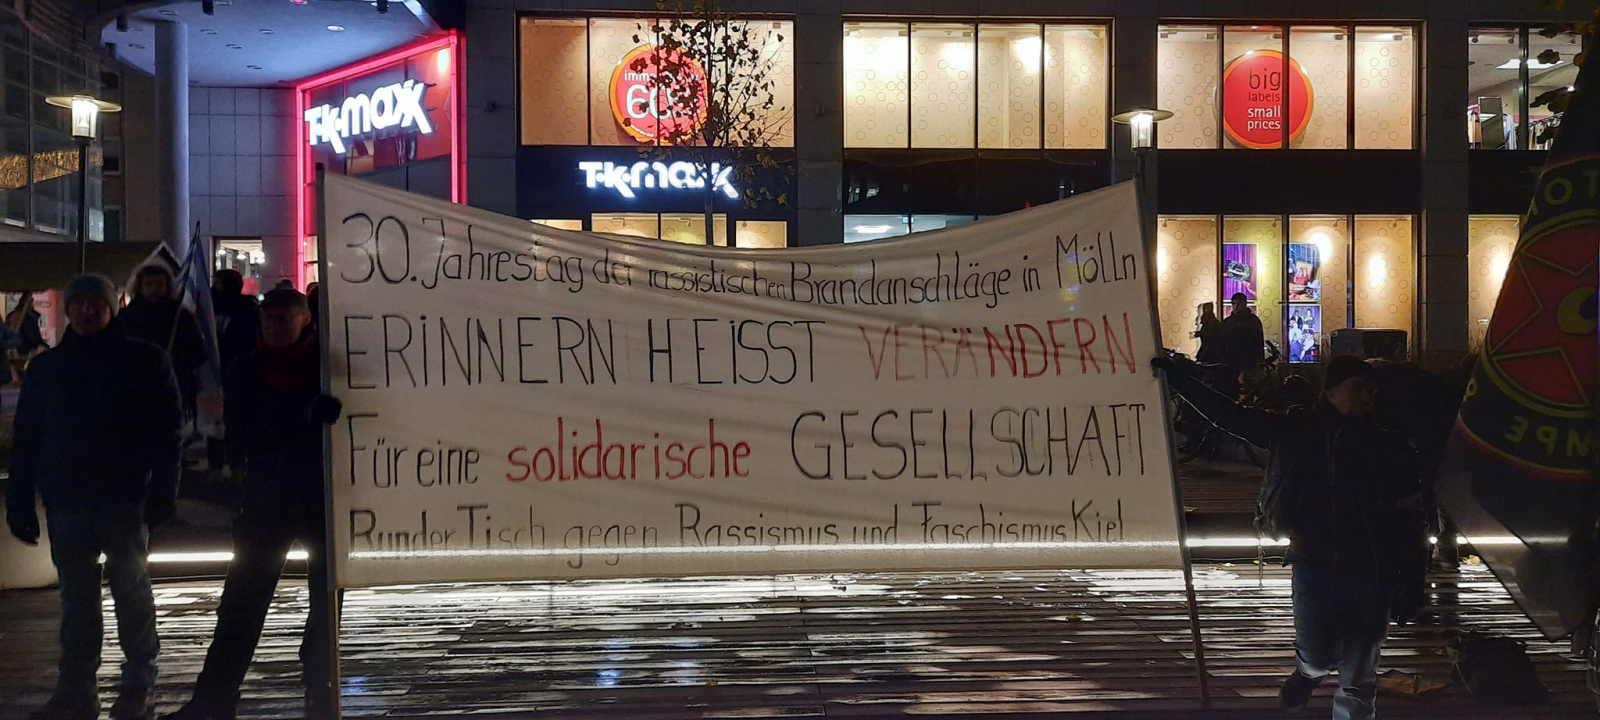 TK-maxx
60%
big
labels
small
prices
TK-maxx
30. Jahrestag der rassistischen Brandanschläge in Mölln
ERINNERN HEISST VERÄNDERN
Für eine solidarische GESELLSCHAFT
Runder Tisch gegen Rassismus und Faschismus Kiel